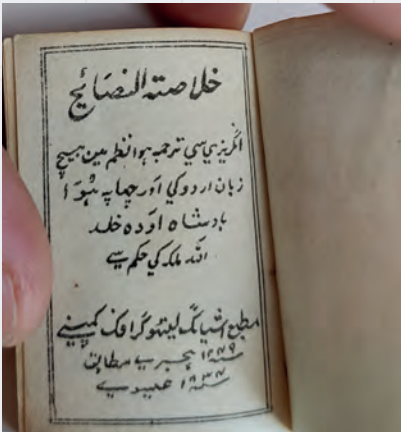 خلاصتہ النصائح
انگریزی سی ترجمہ ہوا نظم مین بیچ
زبان اردو کی اور چھاپہ ہوا
بادشاہ اودہ خلد
اللہ ملکہ کی حکم سے
مطبع اشیاٹک لیتھوگرافک کمپنے
سنہ ۱۲ ہجرے مطابق
سنہ ۱۸۳۷ عیسوے